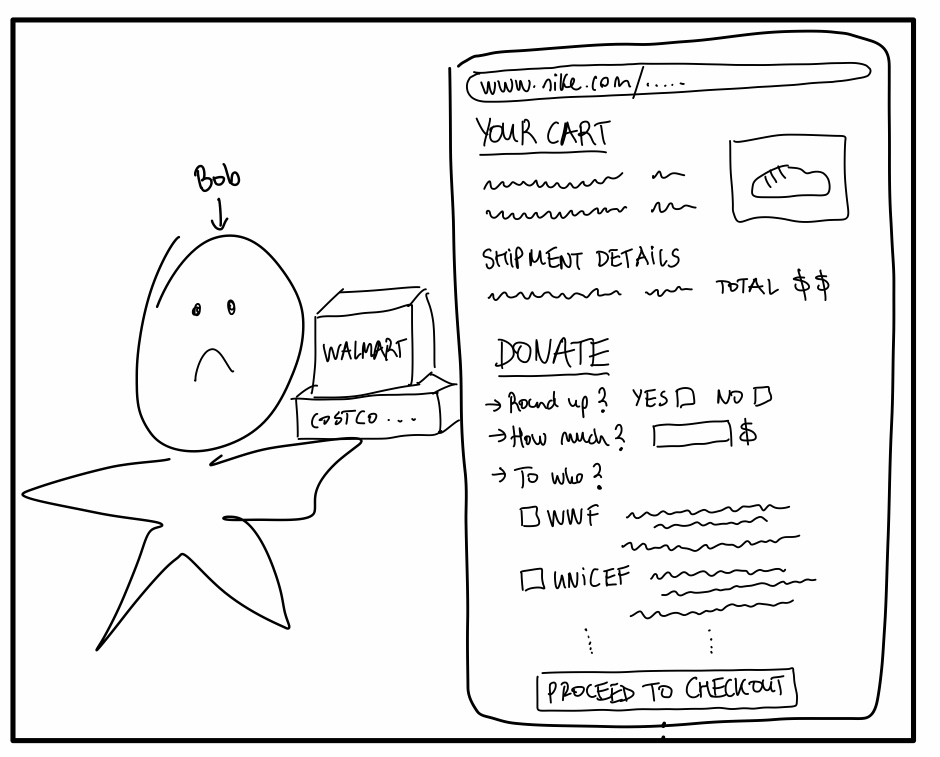 Bob
WALMART
COSTCO ...
www.nike.com/.....
YOUR CART
SHIPMENT DETAILS
TOTAL $$
DONATE
→ Round up? YES NO
→ How much? $
→ To who?
WWF
UNICEF
PROCEED TO CHECKOUT